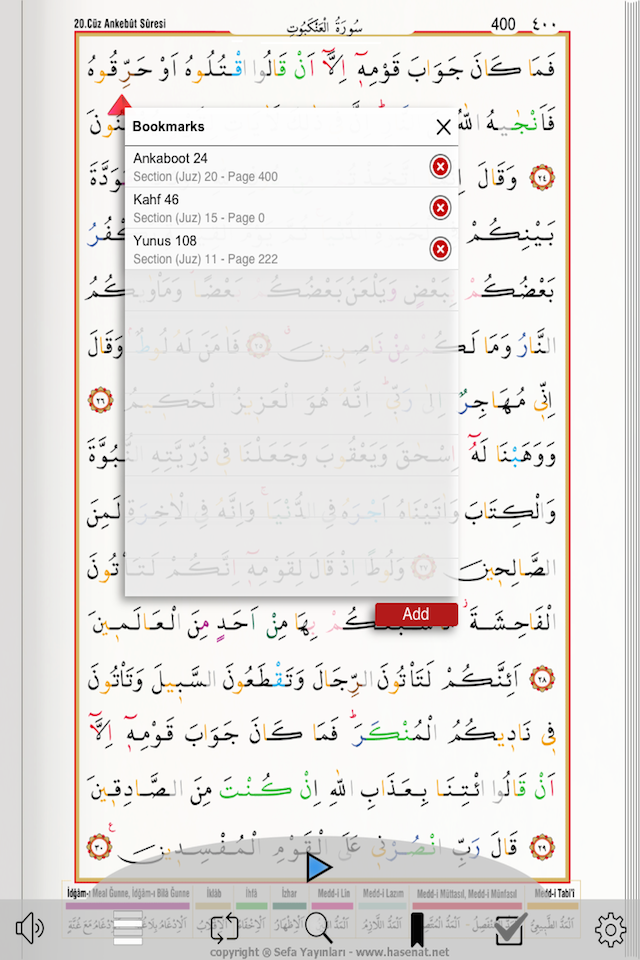 20.Cüz Ankebût Sûresi
سُورَةُ الْعَنْكَبُوتِ
400
٤٠٠
فَمَا كَانَ جَوَابَ قَوْمِهِٓ اِلَّٓا اَنْ قَالُوا اقْتُلُوهُ اَوْ حَرِّقُوهُ
فَاَنْجٰيهُ اللّٰهُ
Bookmarks
Ankaboot 24
Section (Juz) 20 - Page 400
٢٤ وَقَالَ
وَدَّةَ
Kahf 46
Section (Juz) 15 - Page 0
Yunus 108
Section (Juz) 11 - Page 222
بَيْنِكُمْ
بَعْضُكُمْ بِبَعْضٍ وَيَلْعَنُ بَعْضُكُمْ بَعْضًا وَمَأْوٰيكُمُ
النَّارُ وَمَا لَكُمْ مِنْ نَاصِرِينَ ٢٥ فَاٰمَنَ لَهُ لُوطٌ وَقَالَ
اِنِّي مُهَاجِرٌ اِلٰى رَبِّي اِنَّهُ هُوَ الْعَزِيزُ الْحَكِيمُ ٢٦
وَوَهَبْنَا لَهُٓ اِسْحٰقَ وَيَعْقُوبَ وَجَعَلْنَا فِي ذُرِّيَّتِهِ النُّبُوَّةَ
وَالْكِتَابَ وَاٰتَيْنَاهُ اَجْرَهُ فِي الدُّنْيَا وَاِنَّهُ فِي الْاٰخِرَةِ لَمِنَ
الصَّالِحِينَ ٢٧ وَلُوطًا اِذْ قَالَ لِقَوْمِهِٓ اِنَّكُمْ لَتَأْتُونَ
Add
الْفَاحِشَةَ مَا سَبَقَكُمْ بِهَا مِنْ اَحَدٍ مِنَ الْعَالَمِينَ
٢٨ اَئِنَّكُمْ لَتَأْتُونَ الرِّجَالَ وَتَقْطَعُونَ السَّبِيلَ وَتَأْتُونَ
فِي نَادِيكُمُ الْمُنْكَرَ فَمَا كَانَ جَوَابَ قَوْمِهِٓ اِلَّٓا
اَنْ قَالُوا ائْتِنَا بِعَذَابِ اللّٰهِ اِنْ كُنْتَ مِنَ الصَّادِقِينَ
٢٩ قَالَ رَبِّ انْصُرْنِي عَلَى الْقَوْمِ الْمُفْسِدِينَ ٣٠
İdğâm-ı Meal Gunne, İdğâm-ı Bilâ Gunne İklâb İhfâ İzhar Medd-i Lin Medd-i Lazım Medd-i Müttasıl, Medd-i Münfasıl Medd-i Tabî'î
copyright ® Sefa Yayınları - www.hasenat.net